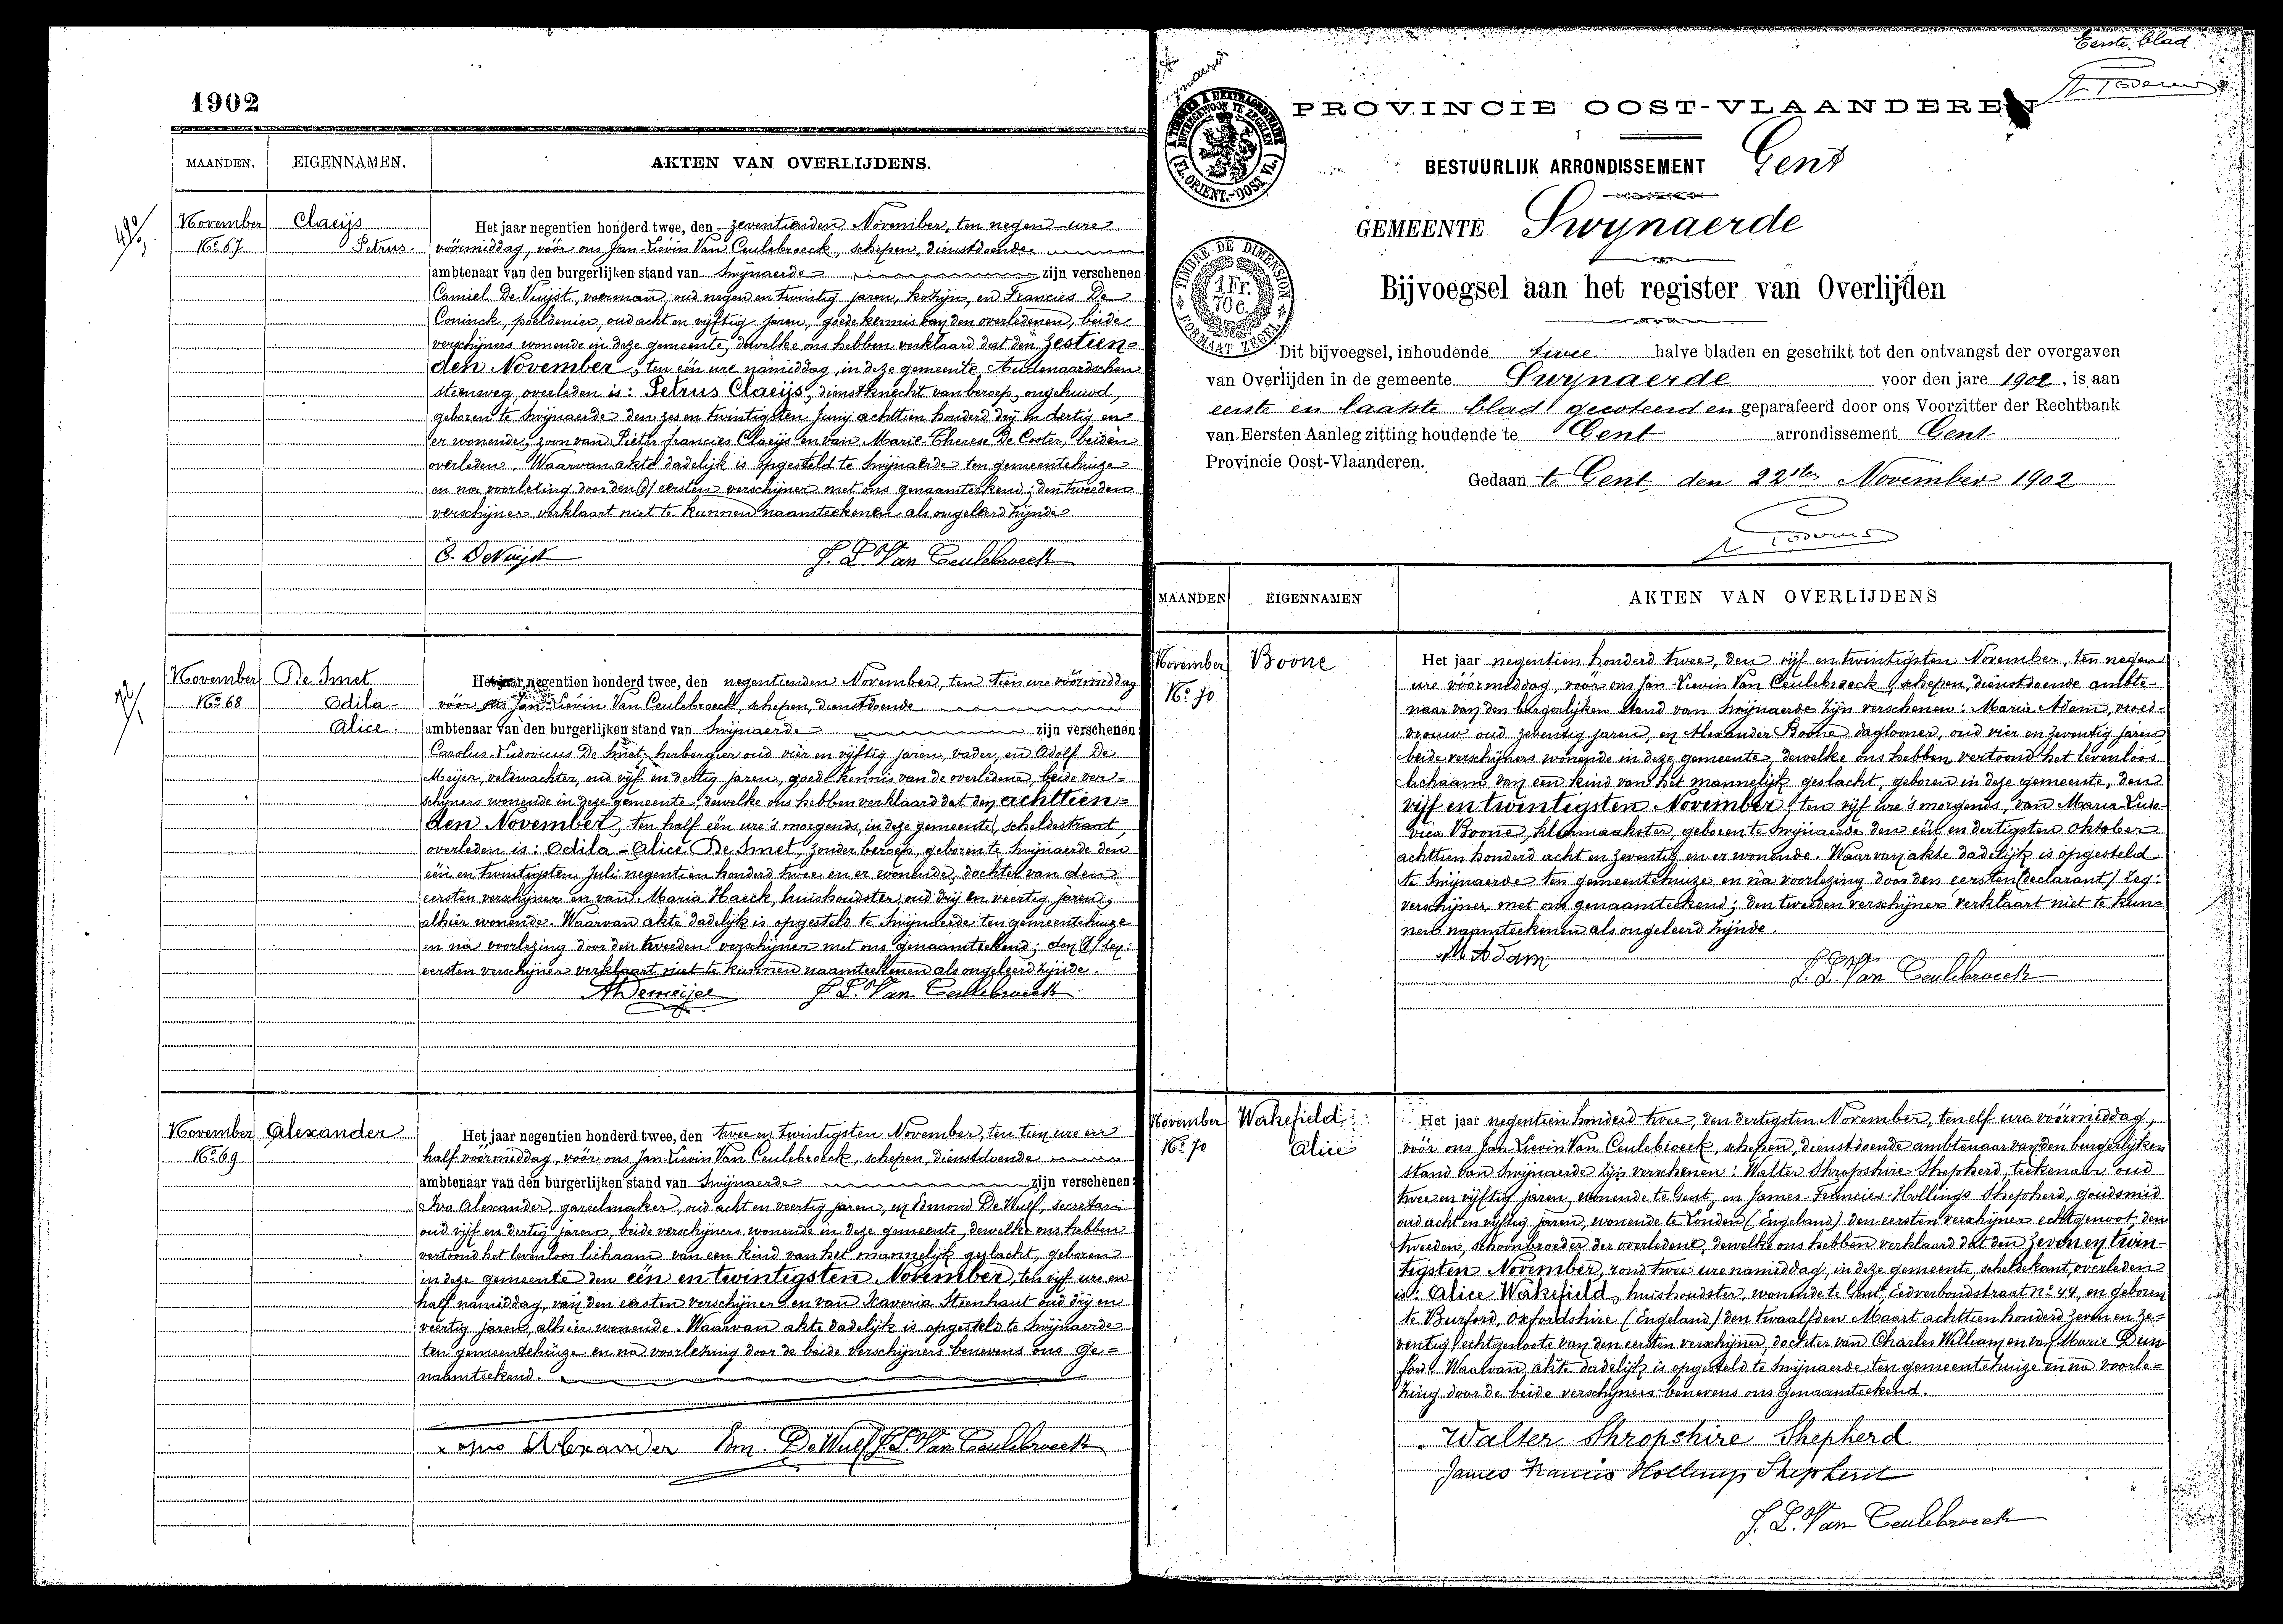 1902
MAANDEN. EIGENNAMEN. AKTEN VAN OVERLIJDENS.
November
No 67
Claeijs
Petrus.
Het jaar negentien honderd twee, den zeventienden November, ten negen ure
vóórmiddag, vóór ons Jan Lievin Van Ceulebroeck, schepen, dienstdoende
ambtenaar van den burgerlijken stand van Swijnaerde zijn verschenen
Camiel De Vuijst, voerman, oud negen en twintig jaren, kozijn, en Francies De
Coninck, poeldenier, oud acht en vijftig jaren, goede kennis van den overledenen, beide
verschijners wonende in deze gemeente, dewelke ons hebben verklaard dat den zestien-
den November, ten één ure namiddag, in deze gemeente, Audenaardschen
steenweg, overleden is: Petrus Claeijs, dienstknecht van beroep, ongehuwd,
geboren te Swijnaerde den zes en twintigsten Junij achttien honderd drij en dertig en
er wonende, zoon van Pieter francies Claeijs en van Marie-Therese De Coster, beiden
overleden. Waarvan akte dadelijk is opgesteld te Swijnaerde ten gemeentehuize
en na voorlezing door den eersten verschijner met ons genaamteekend; den tweeden
verschijner verklaart niet te kunnen naamteekenen als ongeleerd zijnde.
C. DeVuijst J. L. Van Ceulebroeck
November
No 68
De Smet
Odila-
Alice.
Het jaar negentien honderd twee, den negentienden November, ten tien ure vóórmiddag
vóór ons Jan Lievin Van Ceulebroeck, schepen, dienstdoende
ambtenaar van den burgerlijken stand van Swijnaerde zijn verschenen
Carolus-Ludovicus De Smet, herbergier oud vier en vijftig jaren, vader, en Adolf De
Meijer, veldwachter, oud vijf en dertig jaren, goede kennis van de overledene, beide ver-
schijners wonende in deze gemeente, dewelke ons hebben verklaard dat den achttien-
den November, ten half één ure 's morgends, in deze gemeente, scheldestraat,
overleden is: Odila-Alice De Smet, zonder beroep, geboren te Swijnaerde den
één en twintigsten Juli negentien honderd twee en er wonende, dochter van den
eersten verschijner en van Maria Haeck, huishoudster, oud drij en veertig jaren,
alhier wonende. Waarvan akte dadelijk is opgesteld te Swijnaerde ten gemeentehuize
en na voorlezing door den tweeden verschijner met ons genaamteekend; den
eersten verschijner verklaart niet te kunnen naamteekenen als ongeleerd zijnde.
ADemeijer J. L. Van Ceulebroeck
November
No 69
Alexander
Het jaar negentien honderd twee, den twee en twintigsten November, ten tien ure en
half vóórmiddag, vóór ons Jan Lievin Van Ceulebroeck, schepen, dienstdoende
ambtenaar van den burgerlijken stand van Swijnaerde zijn verschenen
Ivo Alexander, gareelmaker, oud acht en veertig jaren, en Edmond De Wulf, secretaris
oud vijf en dertig jaren, beide verschijners wonende in deze gemeente, dewelke ons hebben
vertoond het levenloos lichaam van een kind van het mannelijk geslacht, geboren
in deze gemeente den één en twintigsten November, ten vijf ure en
half namiddag, van den eersten verschijner en van Xaveria Steenhaut oud drij en
veertig jaren, alhier wonende. Waarvan akte dadelijk is opgesteld te Swijnaerde
ten gemeentehuize en na voorlezing door de beide verschijners benevens ons ge=
naamteekend.
Ivo Alexander Em. DeWulf J. L. Van Ceulebroeck
Eerste blad
PROVINCIE OOST-VLAANDEREN
BESTUURLIJK ARRONDISSEMENT Gent
GEMEENTE Swynaerde
Bijvoegsel aan het register van Overlijden
TIMBRE DE DIMENSION
1 Fr.
70 c.
FORMAAT ZEGEL
Dit bijvoegsel, inhoudende twee halve bladen en geschikt tot den ontvangst der overgaven
van Overlijden in de gemeente Swynaerde voor den jare 1902, is aan
eerste en laatste blad gecoteerd en geparafeerd door ons Voorzitter der Rechtbank
van Eersten Aanleg zitting houdende te Gent arrondissement Gent
Provincie Oost-Vlaanderen.
Gedaan te Gent, den 22sten November 1902
MAANDEN EIGENNAMEN AKTEN VAN OVERLIJDENS
November
No 70
Boone
Het jaar negentien honderd twee, den vijf en twintigsten November, ten negen
ure vóórmiddag, vóór ons Jan-Lievin Van Ceulebroeck, schepen, dienstdoende ambte-
naar van den burgerlijken stand van Swijnaerde zijn verschenen: Maria Adam, vroed-
vrouw oud zeventig jaren, en Alexander Boone daglooner, oud vier en zeventig jaren
beide verschijners wonende in deze gemeente, dewelke ons hebben vertoond het levenloos
lichaam van een kind van het mannelijk geslacht, geboren in deze gemeente, den
vijf en twintigsten November, ten vijf ure 's morgends, van Maria Ludo-
vica Boone, kleermaakster, geboren te Swijnaerde den één en dertigsten Oktober
achttien honderd acht en zeventig en er wonende. Waarvan akte dadelijk is opgesteld
te Swijnaerde ten gemeentehuize en na voorlezing door den eersten (declarant) leg:
verschijner met ons genaamteekend; den tweeden verschijner verklaart niet te kun-
nen naamteekenen als ongeleerd zijnde.
M Adam J. L. Van Ceulebroeck
November
No 70
Wakefield
Alice
Het jaar negentien honderd twee, den dertigsten November, ten elf ure vóórmiddag,
vóór ons Jan Lievin Van Ceulebroeck, schepen, dienstdoende ambtenaar van den burgerlijken
stand van Swijnaerde zijn verschenen: Walter Shropshire Shepherd, teekenaar oud
twee en vijftig jaren, wonende te Gent, en James-Francies-Hollings Shepherd, goudsmid
oud acht en vijftig jaren, wonende te Londen (Engeland) den eersten verschijner echtgenoot, den
tweeden, schoonbroeder der overledene, dewelke ons hebben verklaard dat den zeven en twin-
tigsten November, rond twee ure namiddag, in deze gemeente, scheldekant, overleden
is: Alice Wakefield, huishoudster, wonende te Gent, Eedverbondstraat no 44, en geboren
te Burford, Oxfordshire (Engeland) den twaalfden Maart achttien honderd zeven en ze=
ventig, echtgenoote van den eersten verschijner, dochter van Charles William en van Marie Dun
ford. Waarvan akte dadelijk is opgesteld te Swijnaerde ten gemeentehuize en na voorle=
zing door de beide verschijners benevens ons genaamteekend.
Walter Shropshire Shepherd
James Francis Hollings Shepherd
J. L. Van Ceulebroeck